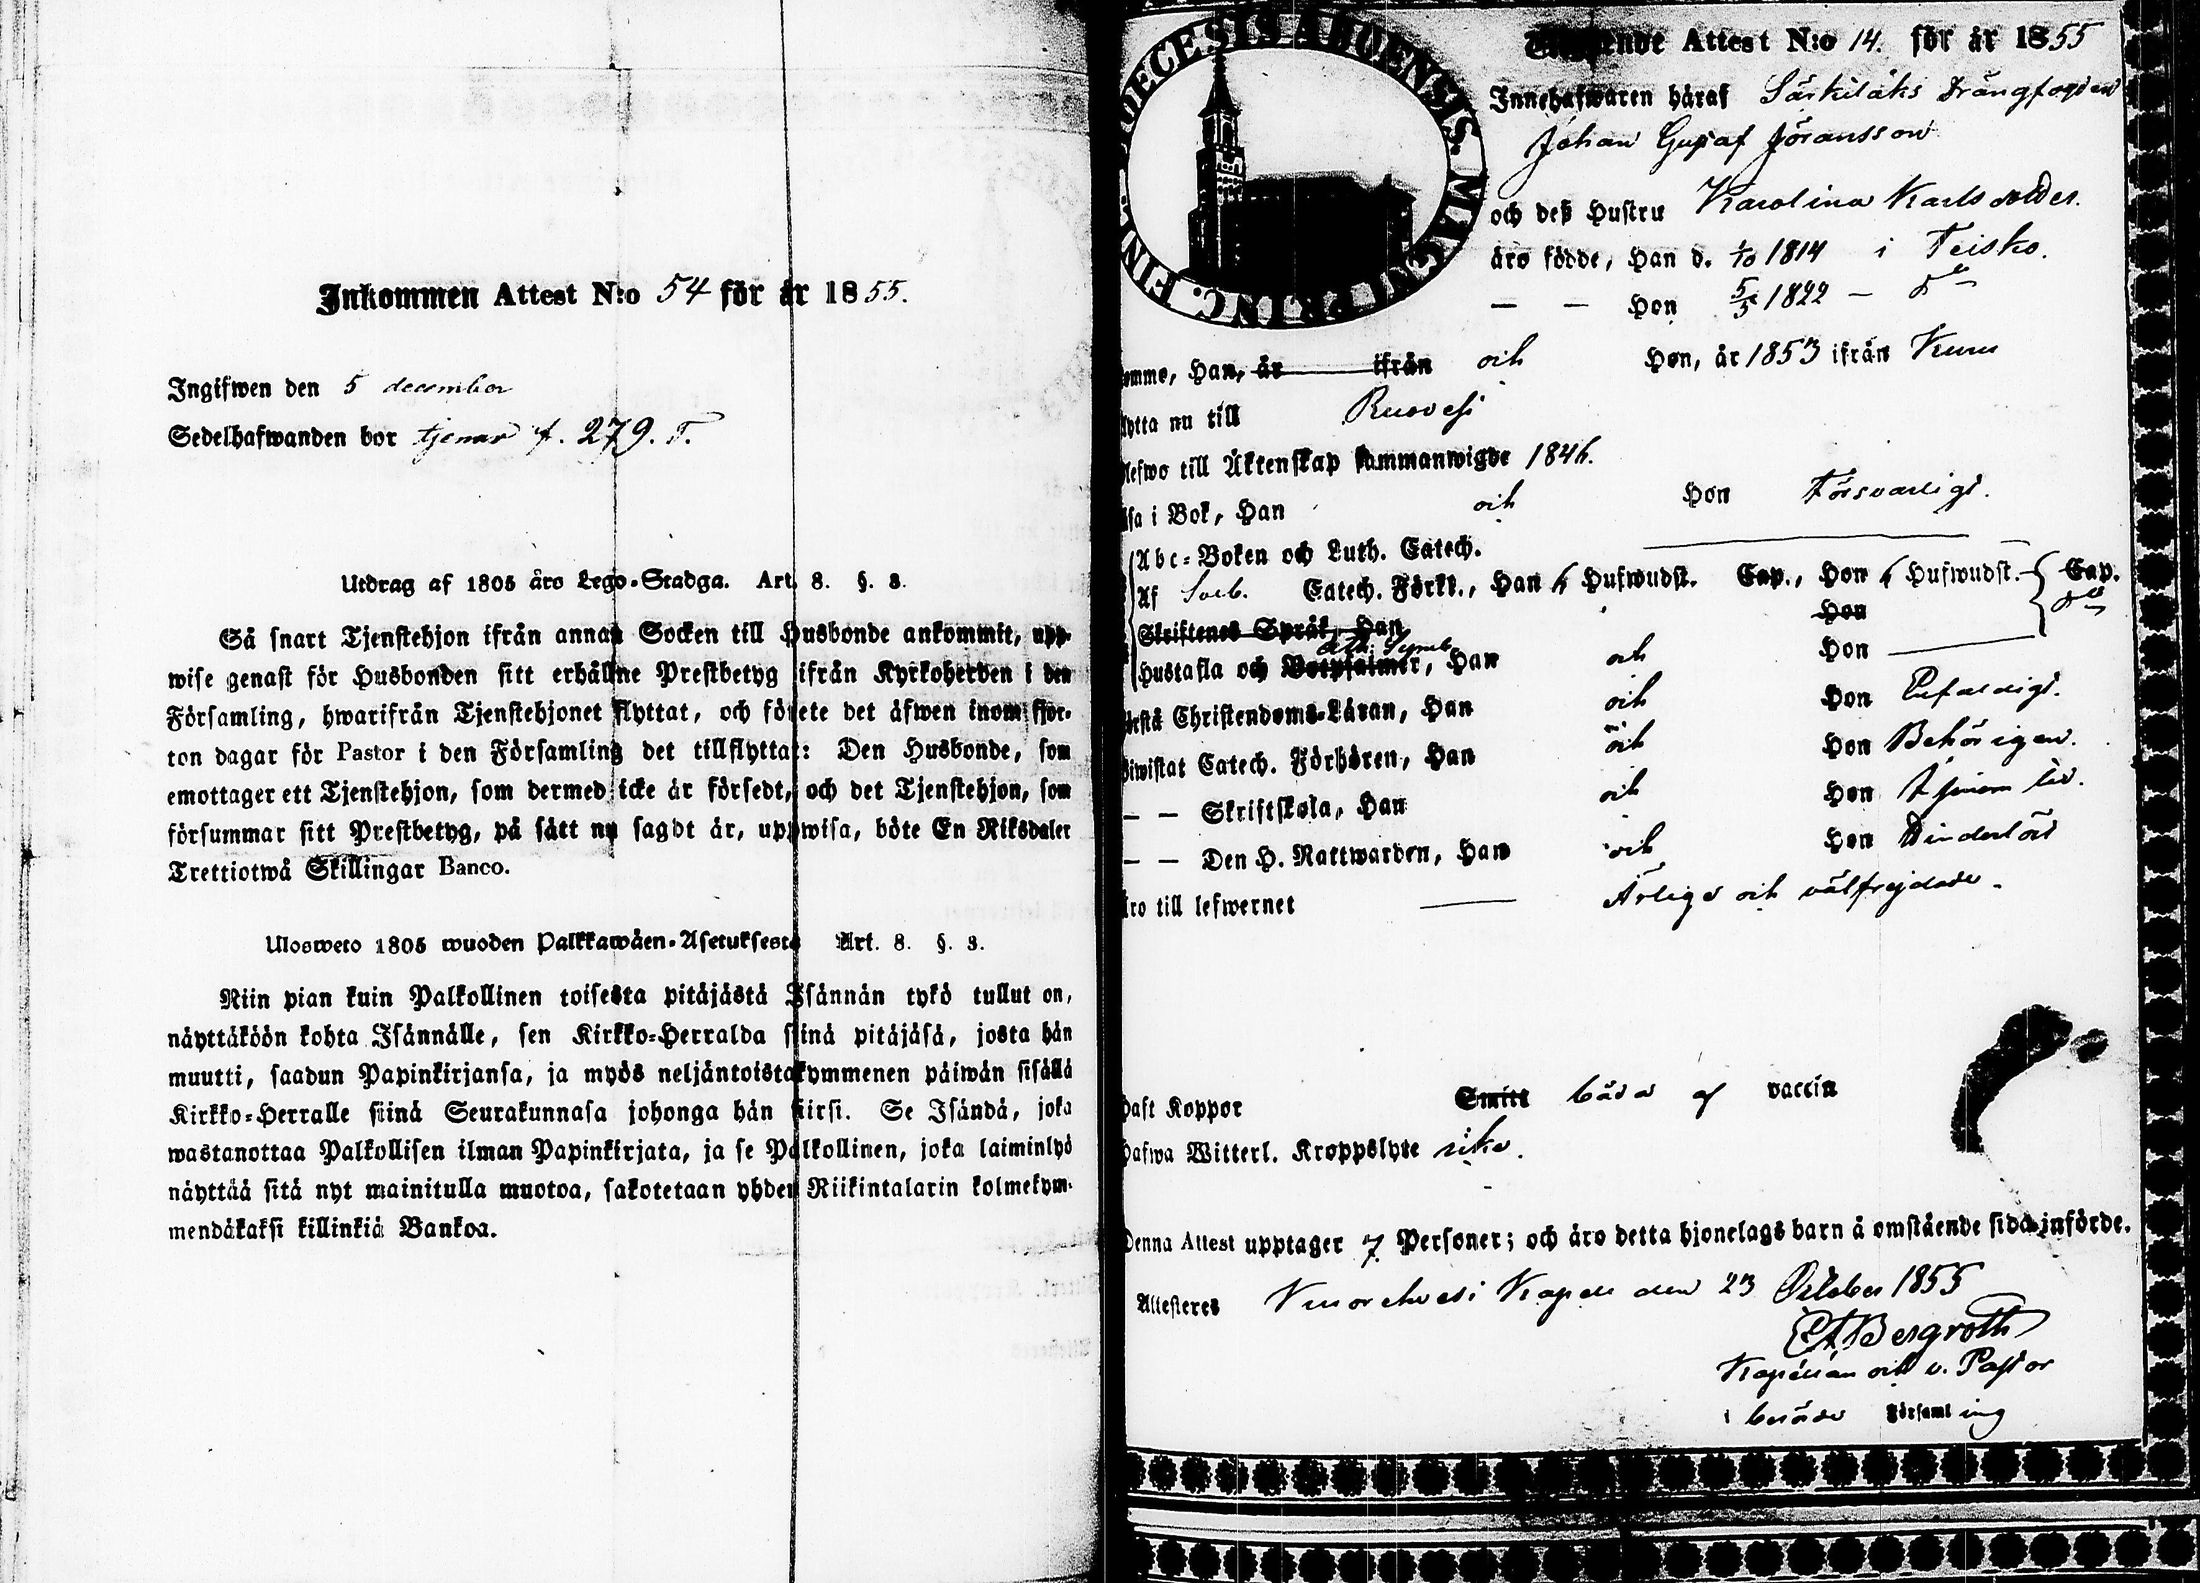 Inkommen Attest N:o 54 för år 1855.
Ingifwen den 5 december
Sedelhafwanden bor tjenar f. 279. T.
Utdrag af 1805 års Lego-Stadga. Art. 8. §. 3.
Så snart Tjenstehjon ifrån annan Socken till Husbonde ankommit, upp-
wise genast för Husbonden sitt erhållne Prestbetyg ifrån Kyrkoherden i den
Församling, hwarifrån Tjenstehjonet flyttat, och förete det äfwen inom fjor-
ton dagar för Pastor i den Församling det tillflyttat: Den Husbonde, som
emottager ett Tjenstehjon, som dermed icke är försedt, och det Tjenstehjon, som
försummar sitt Prestbetyg, på sätt nu sagdt är, uppwisa, böte En Riksdaler
Trettiotwå Skillingar Banco.
Ulosweto 1805 wuoden Palkkawäen-Asetuksesta Art. 8. §. 3.
Niin pian kuin Palkollinen toisesta pitäjästä Isännän tykö tullut on,
näyttäköön kohta Isännälle, sen Kirkko-Herralda siinä pitäjäsä, josta hän
muutti, saadun Papinkirjansa, ja myös neljäntoistakymmenen päiwän sisällä
Kirkko-Herralle siinä Seurakunnasa johonga hän siirsi. Se Isändä, joka
wastanottaa Palkollisen ilman Papinkirjata, ja se Palkollinen, joka laiminlyö
näyttää sitä nyt mainitulla muotoa, sakotetaan yhden Riikintalarin kolmekym-
mendäkaksi killinkiä Bankoa.
DIOECESIS ABOENSIS. MAGNI PRINC. FINL.
Attest N:o 14. för år 1855
Innehafwaren häraf Särkiläks Drängfogden
Johan Gustaf Jöransson
och deß Hustru Karolina Karlsdotter.
äro födde, Han d. 1/10 1814 i Teisko.
— — Hon 5/5 1822 — do
komme, Han, är ifrån och Hon, år 1853 ifrån Kuru
flytta nu till Ruovesi
blefwo till Äktenskap sammanwigde 1846.
läsa i Bok, Han och Hon Försvarligt.
Abc-Boken och Luth. Catech.
Af Sveb. Catech. Förkl., Han 6 Hufwudst. Cap., Hon 6 Hufwudst. Cap.
Skriftenes Språk, Han Hon do
Hustafla och Botpsalmer, Ath: Symb. Han och Hon
förstå Christendoms-Läran, Han och Hon Enfaldigt.
biwistat Catech. Förhören, Han och Hon Behörigen.
— — Skriftskola, Han och Hon I sinom tid.
— — Den H. Nattwarden, Han och Hon
äro till lefwernet Ärliga och välfrejdade.
haft Koppor båda af vaccin
hafwa Witterl. Kroppslyte icke.
Denna Attest upptager 7 Personer; och äro detta hjonelags barn å omstående sida införde.
Attesteres Kuorehvesi Kapell den 23 October 1855
CA Bergroth
Kapellan och v. Pastor
i berörde Församling